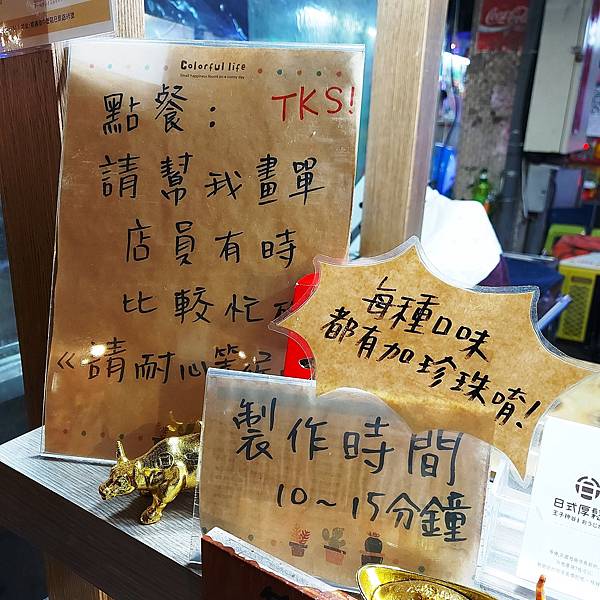 Colorful life
點餐：
TKS!
請幫我畫單
店員有時
比較忙
《請耐心等
每種口味
都有加珍珠唷！
製作時間
10～15分鐘
Coca-Cola
日式厚鬆